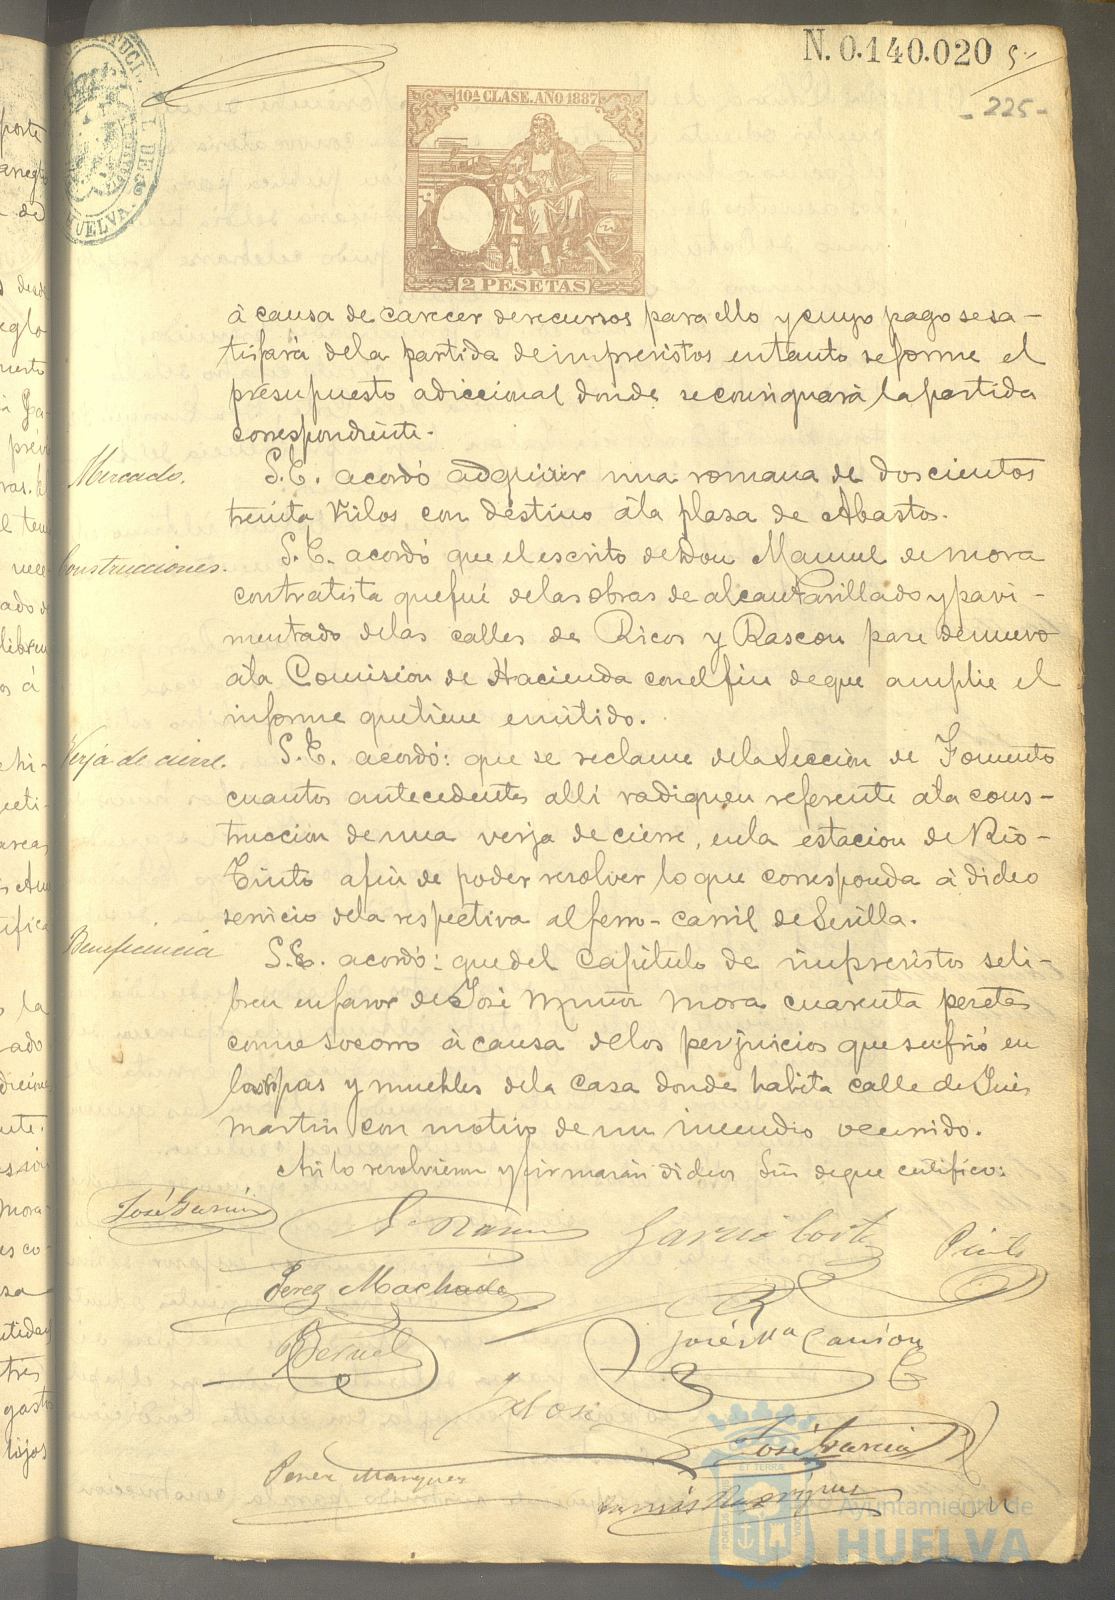 N. 0.140.020
-225-
10ª CLASE. AÑO 1887
2 PESETAS
HUELVA.
à causa de carecer de recursos para ello y cuyo pago se sa-
tisfará de la partida de imprevistos en tanto se forme el
présupuesto adiccional donde se consignará la partida
correspondiente.
Mercado.
S.E. acordó adquirir una romana de doscientos
treinta Kilos con destino á la plasa de Abastos.
Construcciones.
S.E. acordó que el escrito de Don Manuel de Mora
contratista que fué de las obras de alcantarillado y pavi-
mentado de las calles de Ricos y Rascon pase de nuevo
á la Comision de Hacienda con el fin de que amplie el
informe que tiene emitido.
Verja de cierre.
S.E. acordó: que se reclame de la Seccion de Fomento
cuantos antecedentes alli radiquen referente á la cons-
truccion de una verja de cierre, en la estacion de Rio-
Tinto a fin de poder resolver lo que corresponda á dicho
servicio de la respectiva al ferro-carril de Sevilla.
Beneficencia
S.E. acordó: que del Capitulo de imprevistos se li-
bren en favor de José Muñoz Mora cuarenta pesetas
como socorro á causa de los perjuicios que sufrió en
las ropas y muebles de la casa donde habita calle de
Martin con motivo de un incendio ocurrido.
Asi lo resolvieron y firmarán dichos Sres de que certifico:
José García
García Cortés
Pinto
Perez Machado
Bernal
José Mª
José García
Perez Marquez
Ayuntamiento de
HUELVA